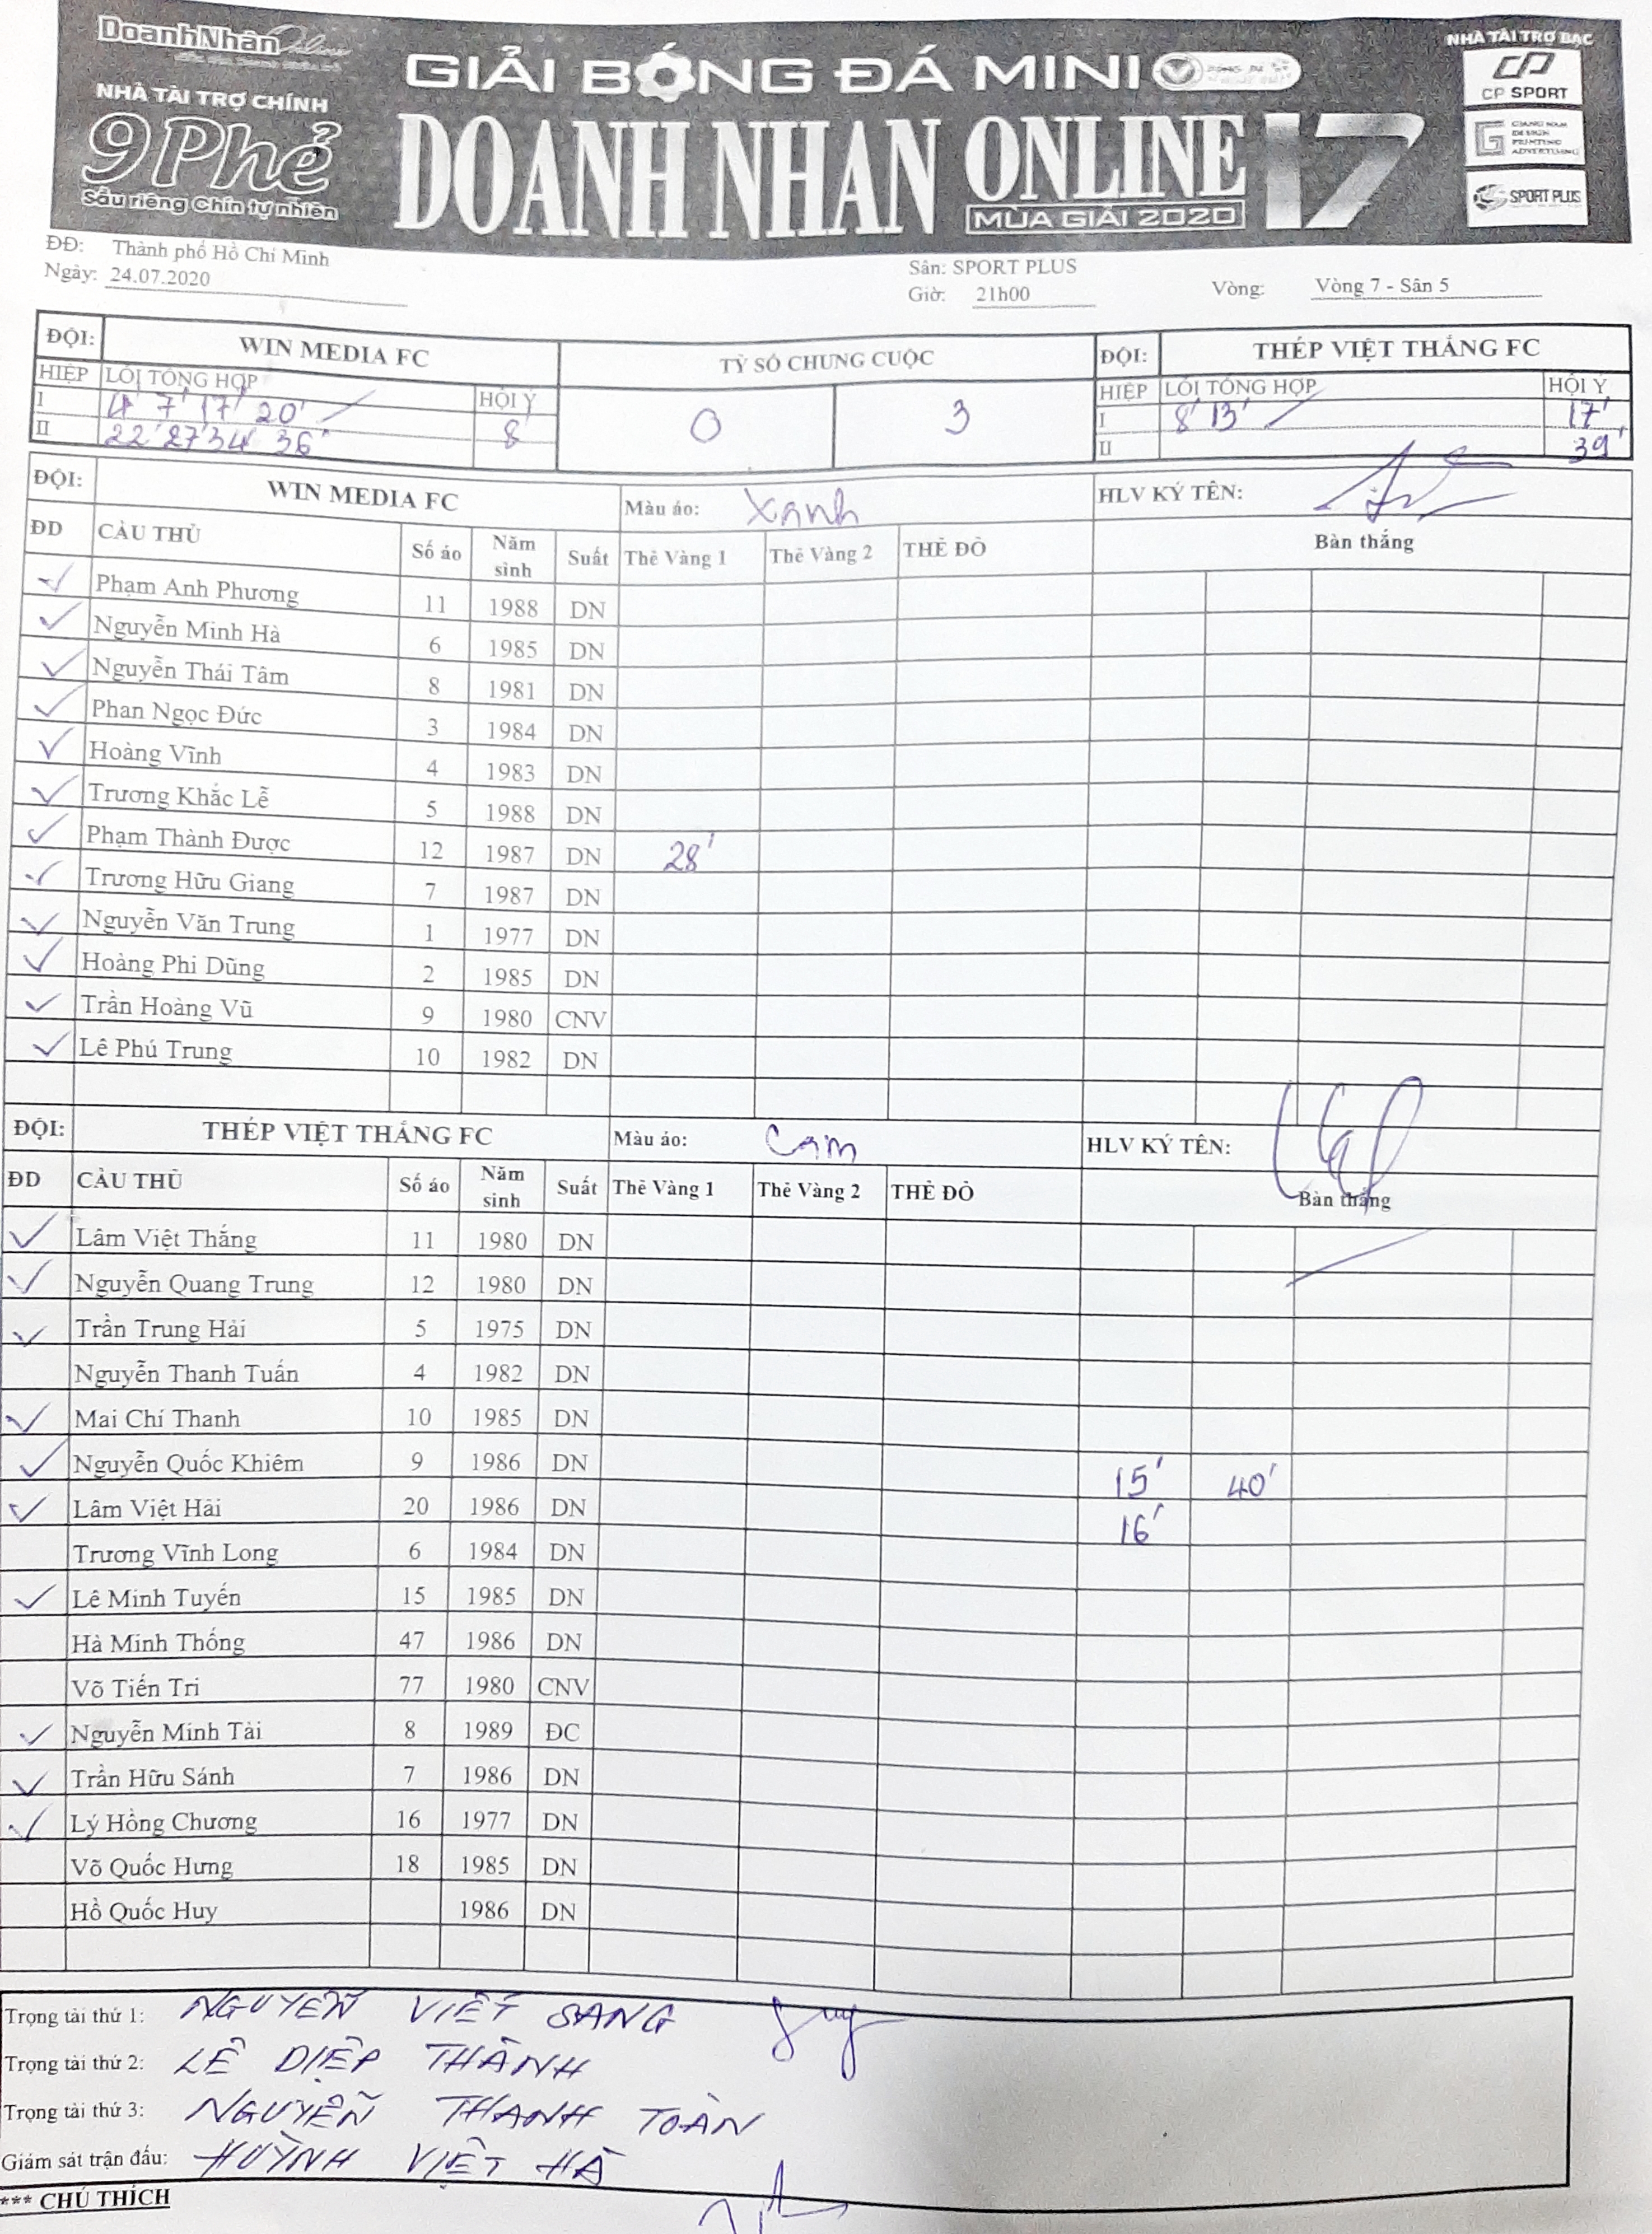 DoanhNhân Online
NHÀ TÀI TRỢ CHÍNH
9 Phẻ
Sầu riêng Chín tự nhiên
GIẢI BÓNG ĐÁ MINI
DOANH NHÂN ONLINE 17
MÙA GIẢI 2020
NHÀ TÀI TRỢ BẠC
CP SPORT
GIANG NAM
DESIGN
PRINTING
ADVERTISING
SPORT PLUS
ĐĐ: Thành phố Hồ Chí Minh
Ngày: 24.07.2020
Sân: SPORT PLUS
Giờ: 21h00
Vòng: Vòng 7 - Sân 5
ĐỘI: WIN MEDIA FC TỶ SỐ CHUNG CUỘC ĐỘI: THÉP VIỆT THẮNG FC
HIỆP LỖI TỔNG HỢP HỘI Ý HIỆP LỖI TỔNG HỢP HỘI Ý
I 4' 7' 17' 20' 0 3 I 8' 13' 17'
II 22' 27' 34' 36' 8' II 39'
ĐỘI: WIN MEDIA FC Màu áo: Xanh HLV KÝ TÊN:
ĐD CẦU THỦ Số áo Năm sinh Suất Thẻ Vàng 1 Thẻ Vàng 2 THẺ ĐỎ Bàn thắng
Phạm Anh Phương 11 1988 DN
Nguyễn Minh Hà 6 1985 DN
Nguyễn Thái Tâm 8 1981 DN
Phan Ngọc Đức 3 1984 DN
Hoàng Vĩnh 4 1983 DN
Trương Khắc Lễ 5 1988 DN
Phạm Thành Được 12 1987 DN 28'
Trương Hữu Giang 7 1987 DN
Nguyễn Văn Trung 1 1977 DN
Hoàng Phi Dũng 2 1985 DN
Trần Hoàng Vũ 9 1980 CNV
Lê Phú Trung 10 1982 DN
ĐỘI: THÉP VIỆT THẮNG FC Màu áo: Cam HLV KÝ TÊN:
ĐD CẦU THỦ Số áo Năm sinh Suất Thẻ Vàng 1 Thẻ Vàng 2 THẺ ĐỎ Bàn thắng
Lâm Việt Thắng 11 1980 DN
Nguyễn Quang Trung 12 1980 DN
Trần Trung Hải 5 1975 DN
Nguyễn Thanh Tuấn 4 1982 DN
Mai Chí Thanh 10 1985 DN
Nguyễn Quốc Khiêm 9 1986 DN 15' 40'
Lâm Việt Hải 20 1986 DN 16'
Trương Vĩnh Long 6 1984 DN
Lê Minh Tuyến 15 1985 DN
Hà Minh Thống 47 1986 DN
Võ Tiến Tri 77 1980 CNV
Nguyễn Minh Tài 8 1989 ĐC
Trần Hữu Sánh 7 1986 DN
Lý Hồng Chương 16 1977 DN
Võ Quốc Hưng 18 1985 DN
Hồ Quốc Huy 1986 DN
Trọng tài thứ 1: NGUYỄN VIẾT SANG
Trọng tài thứ 2: LÊ DIỆP THÀNH
Trọng tài thứ 3: NGUYỄN THANH TOÀN
Giám sát trận đấu: HUỲNH VIỆT HÀ
*** CHÚ THÍCH